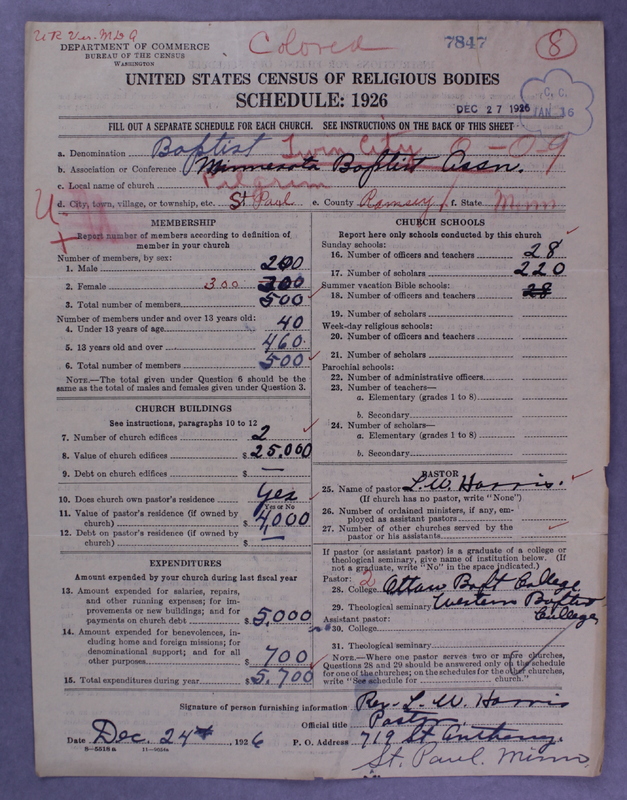 U R Ver. M D A
Colored
7847
8
DEPARTMENT OF COMMERCE
BUREAU OF THE CENSUS
WASHINGTON
UNITED STATES CENSUS OF RELIGIOUS BODIES
SCHEDULE: 1926
DEC 27 1926
C. C.
JAN 16
FILL OUT A SEPARATE SCHEDULE FOR EACH CHURCH. SEE INSTRUCTIONS ON THE BACK OF THIS SHEET
a. Denomination Baptist Twin City 0-09
b. Association or Conference Minnesota Baptist Assn.
c. Local name of church Pilgrim
d. City, town, village, or township, etc. St Paul e. County Ramsey f. State Minn
U
MEMBERSHIP
Report number of members according to definition of
member in your church
Number of members, by sex:
1. Male 200
2. Female 300 300
3. Total number of members 500
Number of members under and over 13 years old:
4. Under 13 years of age 40
5. 13 years old and over 460
6. Total number of members 500
NOTE.—The total given under Question 6 should be the
same as the total of males and females given under Question 3.
CHURCH BUILDINGS
See instructions, paragraphs 10 to 12
7. Number of church edifices 2
8. Value of church edifices $ 25,000
9. Debt on church edifices $ —
10. Does church own pastor's residence yes
Yes or No
11. Value of pastor's residence (if owned by
church) $ 4,000
12. Debt on pastor's residence (if owned by
church) $ —
EXPENDITURES
Amount expended by your church during last fiscal year
13. Amount expended for salaries, repairs,
and other running expenses; for im-
provements or new building; and for
payments on church debt $ 5,000
14. Amount expended for benevolences, in-
cluding home and foreign missions; for
denominational support; and for all
other purposes $ 700
15. Total expenditures during year $ 5,700
CHURCH SCHOOLS
Report here only schools conducted by this church
Sunday schools:
16. Number of officers and teachers 28
17. Number of scholars 220
Summer vacation Bible schools:
18. Number of officers and teachers 28
19. Number of scholars
Week-day religious schools:
20. Number of officers and teachers
21. Number of scholars
Parochial schools:
22. Number of administrative officers
23. Number of teachers—
a. Elementary (grades 1 to 8)
b. Secondary
24. Number of scholars—
a. Elementary (grades 1 to 8)
b. Secondary
PASTOR
25. Name of pastor L. W. Harris.
(If church has no pastor, write "None")
26. Number of ordained ministers, if any, em-
ployed as assistant pastors
27. Number of other churches served by the
pastor or his assistants
If pastor (or assistant pastor) is a graduate of a college or
theological seminary, give name of institution below. (If
not a graduate, write "No" in the space indicated.)
Pastor: 2
28. College Ottaw Bapt College
29. Theological seminary Western Baptist
College
Assistant pastor:
30. College
31. Theological seminary
NOTE.—Where one pastor serves two or more churches,
Questions 28 and 29 should be answered only on the schedule
for one of the churches; on the schedules for the other churches,
write "See schedule for church."
Signature of person furnishing information Rev. L. W. Harris
Official title Pastor
Date Dec. 24th, 1926 P. O. Address 719 St Anthony.
8—5518a 11—9024a
St. Paul. Minn.